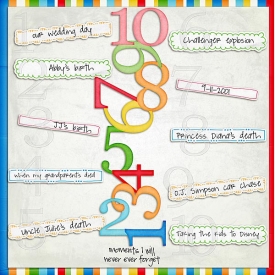 10
our wedding day
Challenger explosion
9
Abby's birth
8
9-11-2001
7
JJ's birth
6
Princess Diana's death
5
4
when my grandparents died
3
O.J. Simpson car chase
2
Uncle Julie's death
1
Taking the kids to Disney
moments I will
never ever forget